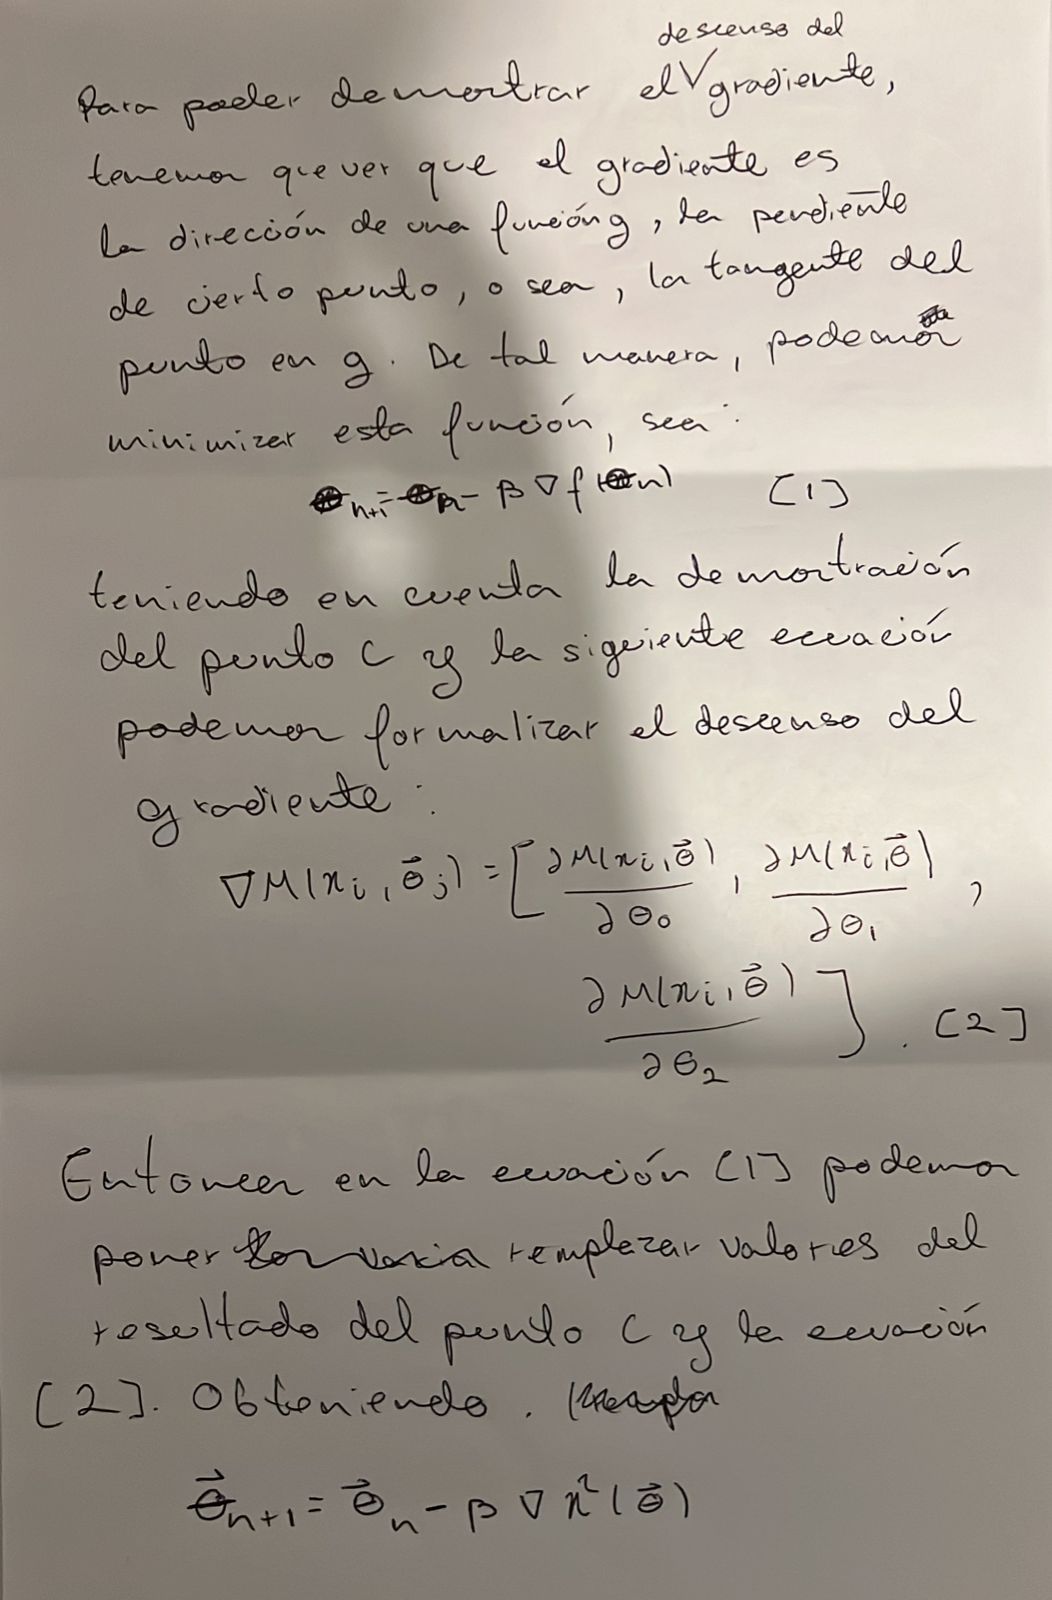 descenso del
Para poder demostrar el √ gradiente,
tenemos que ver que el gradiente es
la dirección de una función g, la pendiente
de cierto punto, o sea, la tangente del
punto en g. De tal manera, podemos
minimizar esta función, sea:
θn+1 = θn - β ∇ f(θn) [1]
teniendo en cuenta la demostración
del punto C y la siguiente ecuación
podemos formalizar el descenso del
gradiente:
∇M(xi, θ⃗j) = [∂M(xi, θ⃗)/∂θ0, ∂M(xi, θ⃗)/∂θ1,
∂M(xi, θ⃗)/∂θ2]. [2]
Entonces en la ecuación [1] podemos
poner remplazar valores del
resultado del punto C y la ecuación
[2]. Obteniendo.
θ⃗n+1 = θ⃗n - β ∇ x²(θ⃗)